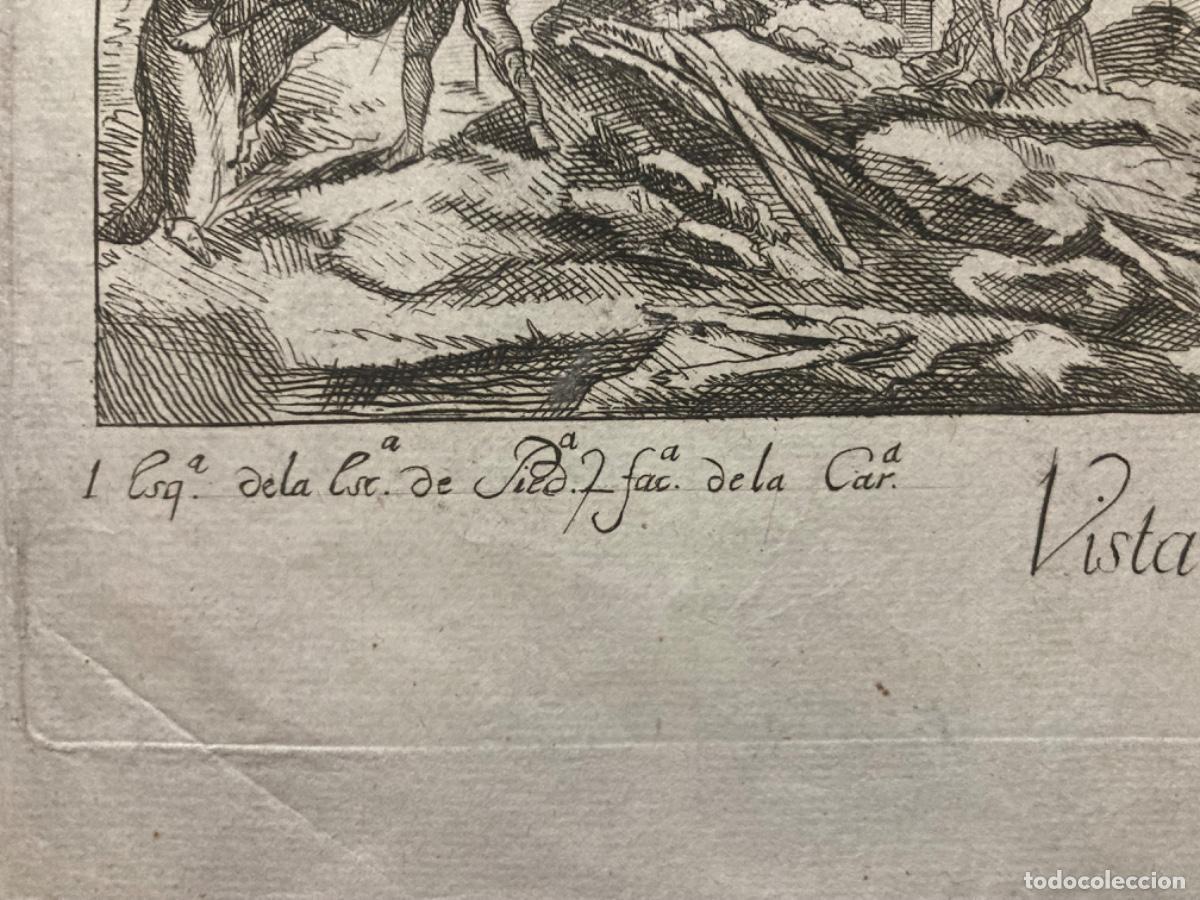 1 Esqª. dela Escª. de Piedª. y facª. de la Carª.
Vista
todocoleccion